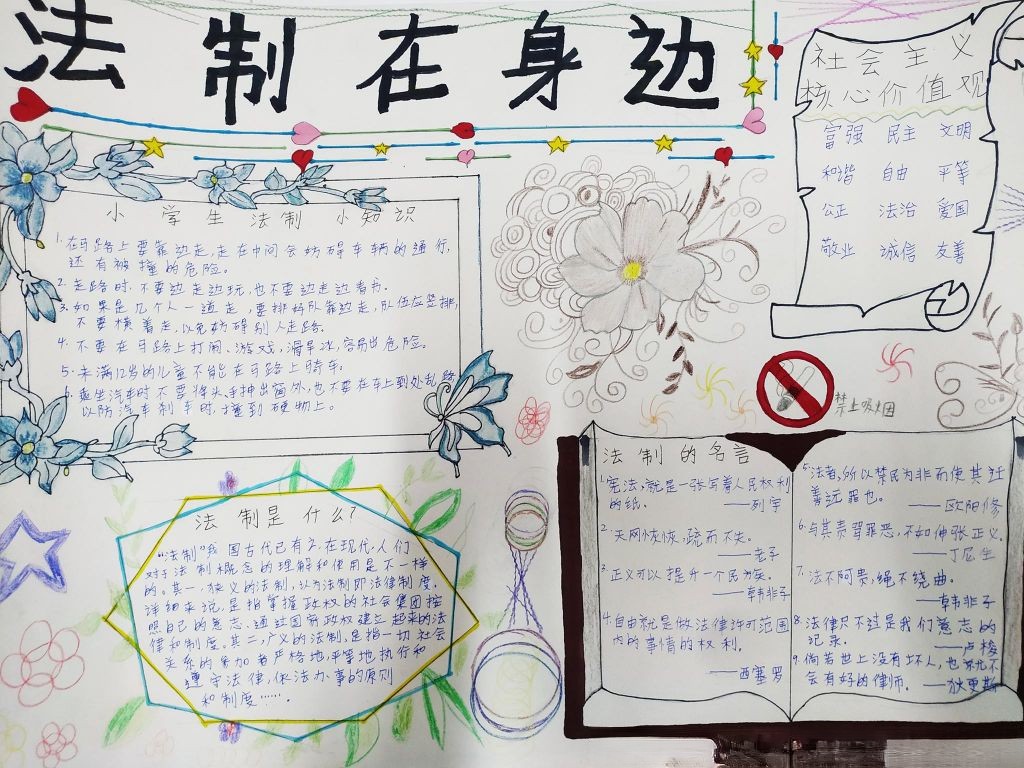 法制在身边
社会主义
核心价值观
富强 民主 文明
和谐 自由 平等
公正 法治 爱国
敬业 诚信 友善
小学生法制小知识
1.在马路上要靠边走,走在中间会妨碍车辆的通行,
还有被撞的危险。
2.走路时,不要边走边玩,也不要边走边看书。
3.如果是几个人一道走,要排好队靠边走,队伍应竖排,
不要横着走,以免妨碍别人走路。
4.不要在马路上打闹、游戏,滑旱冰,容易出危险。
5.未满12岁的儿童不能在马路上骑车。
6.乘坐汽车时不要将头、手抻出窗外,也不要在车上到处乱跑
以防汽车刹车时,撞到硬物上。
禁止吸烟
法制的名言
1.宪法,就是一张写着人民权利
的纸。——列宁
2.天网恢恢,疏而不失。
——老子
3.正义可以提升一个民族。
——韩非子
4.自由就是做法律许可范围
内的事情的权利。
——西塞罗
5.法者,所以禁民为非而使其迁
善远罪也。——欧阳修
6.与其责骂罪恶,不如伸张正义。
——丁尼生
7.法不阿贵,绳不绕曲。
——韩非子
8.法律只不过是我们意志的
记录。——卢梭
9.倘若世上没有坏人,也就不
会有好的律师。——狄更斯
法制是什么?
“法制”我国古代已有之,在现代,人们
对于法制概念的理解和使用是不一样
的。其一,狭义的法制,认为法制即法律制度。
详细来说,是指掌握政权的社会集团按
照自己的意志、通过国家政权建立起来的法
律和制度。其二,广义的法制,是指一切社会
关系的参加者严格地,平等地执行和
遵守法律,依法办事的原则
和制度……